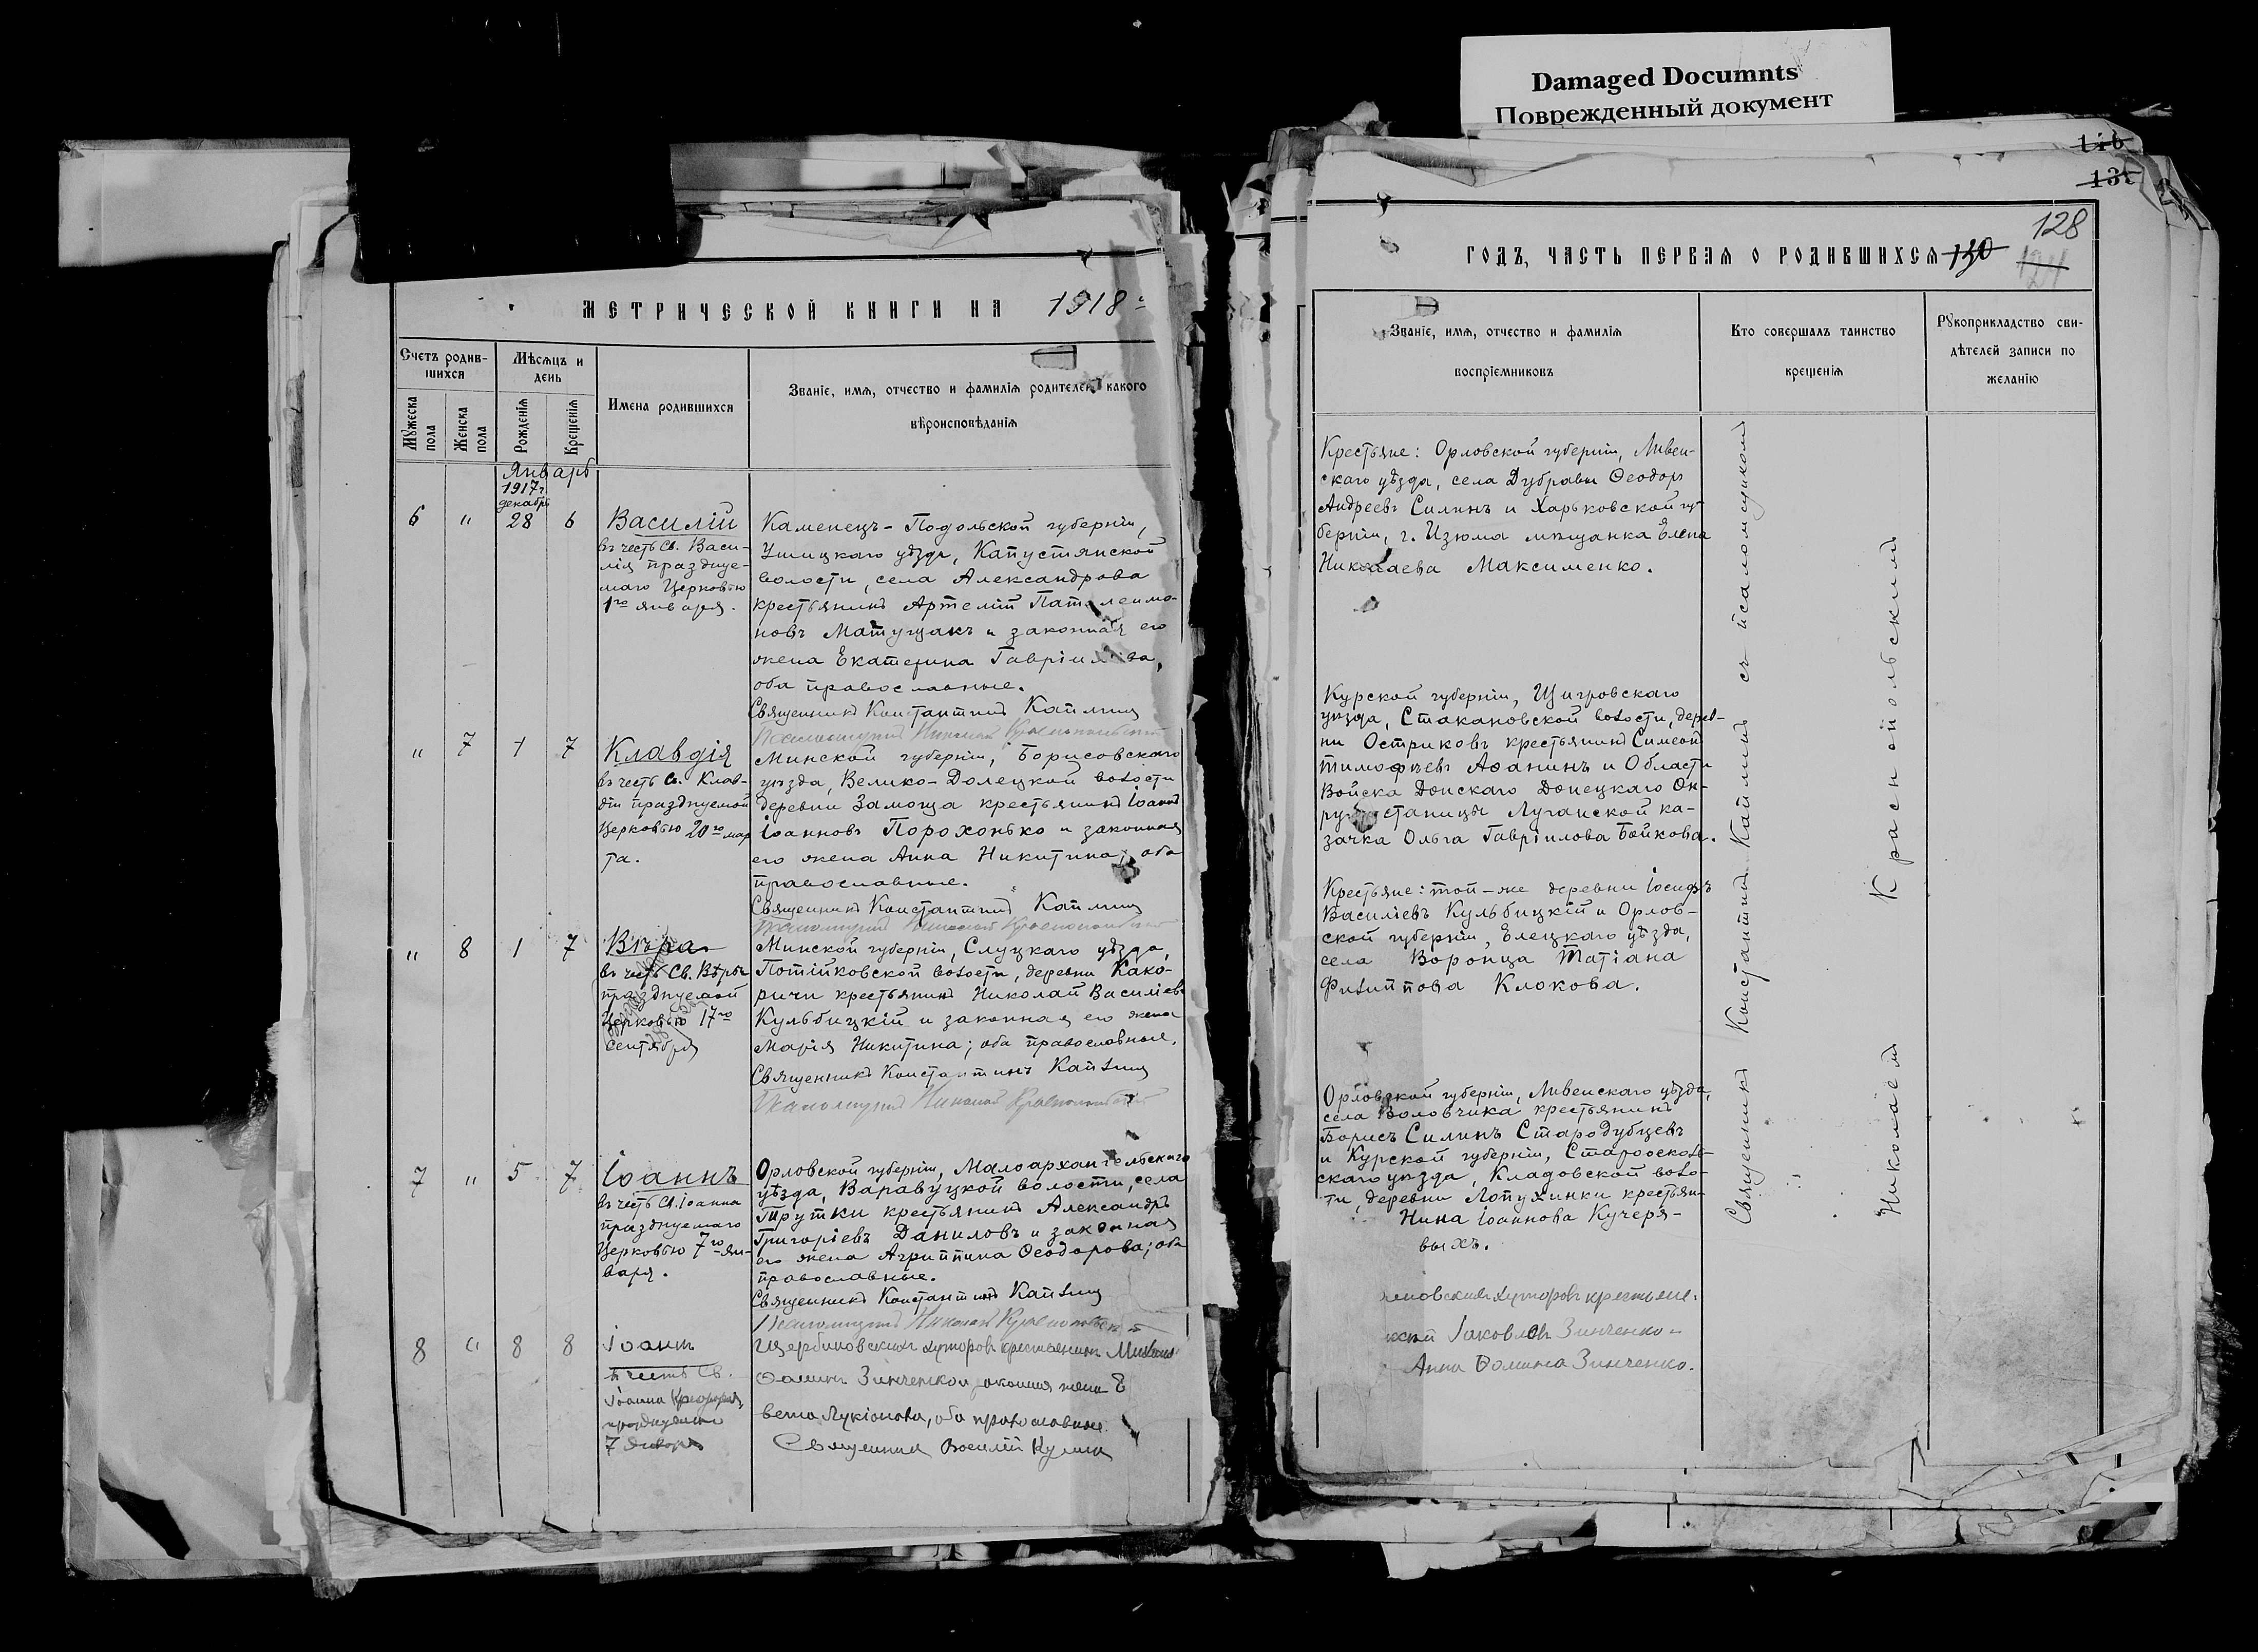 Damaged Documnts
Поврежденный документ
МЕТРИЧЕСКОЙ КНИГИ НА 1918
Счетъ родив-
шихся
Мѣсяцъ и
день
Имена родившихся
Званіе, имя, отчество и фамилія родителей какого
вѣроисповѣданія
Мужеска пола
Женска пола
Рожденія
Крещенія
Январь
1917 г.
декабрь
6 " 28 6
Василій
въ честь Св. Васи-
лія празднуе-
маго Церковью
1го января.
Каменецъ-Подольской губерніи,
Ушицкаго уѣзда, Капустянской
волости, села Александрова
крестьянинъ Артемій
новъ Матущакъ и законная его
жена Екатерина
оба православные.
Священникъ Константинъ Каплинъ
Псаломщикъ Николай Краснопольскій
" 7 1 7
Клавдія
въ честь Св. Клав-
діи празднуемой
Церковью 20го мар
та.
Минской губерніи, Борисовскаго
уѣзда, Велико-Долецкой волости
деревни Замоща крестьянинъ Іоаннъ
Іоанновъ Порохонько и законная
его жена Анна Никитина, оба
православные.
Священникъ Константинъ Каплинъ
Псаломщикъ Николай Краснопольскій
" 8 1 7
Вѣра
въ честь Св. Вѣры
празднуемой
Церковью 17го
сентября
Минской губерніи, Слуцкаго уѣзда,
волости, деревни Како-
ричи крестьянинъ Николай Василіевъ
Кульбицкій и законная его жена
Марія Никитина; оба православные.
Священникъ Константинъ Каплинъ
Псаломщикъ Николай Краснопольскій
7 " 5 7
Іоаннъ
въ честь Св. Іоанна
празднуемаго
Церковью 7го ян-
варя.
Орловской губерніи, Малоархангельскаго
уѣзда, волости, села
крестьянинъ Александръ
Григоріевъ Даниловъ и законная
его жена Агриппина Ѳеодорова; оба
православные.
Священникъ Константинъ Каплинъ
Псаломщикъ Николай Краснопольскій
8 " 8 8
Іоаннъ
въ честь Св.
Іоанна
7 января
Щербиновскихъ хуторовъ крестьянинъ
Зинченко законная жена
Лукіонова, оба православные
Священникъ Василій
146
135
128
ГОДЪ, ЧАСТЬ ПЕРВАЯ О РОДИВШИХСЯ 130 124
Званіе, имя, отчество и фамилія
воспріемниковъ
Кто совершалъ таинство
крещенія
Рукоприкладство сви-
дѣтелей записи по
желанію
Крестьяне: Орловской губерніи, Ливен-
скаго уѣзда, села Дубравы Ѳеодоръ
Андреевъ Силинъ и Харьковской гу-
берніи, г. Изюма мѣщанка Елена
Николаева Максименко.
Курской губерніи, Щигровскаго
уѣзда, Стакановской волости, дерев-
ни Остриковъ крестьянинъ Симеонъ
Тимоѳеевъ Аѳанинъ и Области
Войска Донскаго Донецкаго Ок-
станицы Луганской ка-
зачка Ольга Гавріилова Бойкова.
Крестьяне: той-же деревни Іосифъ
Василіевъ Кульбицкій и Орлов-
ской губерніи, Елецкаго уѣзда,
села Воронца Татіана
Филиппова Клокова.
Орловской губерніи, Ливенскаго уѣзда,
села Воловчика крестьянинъ
Борисъ Силинъ Стародубцевъ
и Курской губерніи, Староосколь-
скаго уѣзда, Кладовской воло-
ти, деревни Лопухинки крестьян-
Нина Іоаннова Кучеря-
выхъ.
хуторовъ крестьяне:
Іаковлевъ Зинченко
Анна Ѳомина Зинченко.
Священникъ Константинъ Каплинъ съ псаломщикомъ
Николаемъ Краснопольскимъ